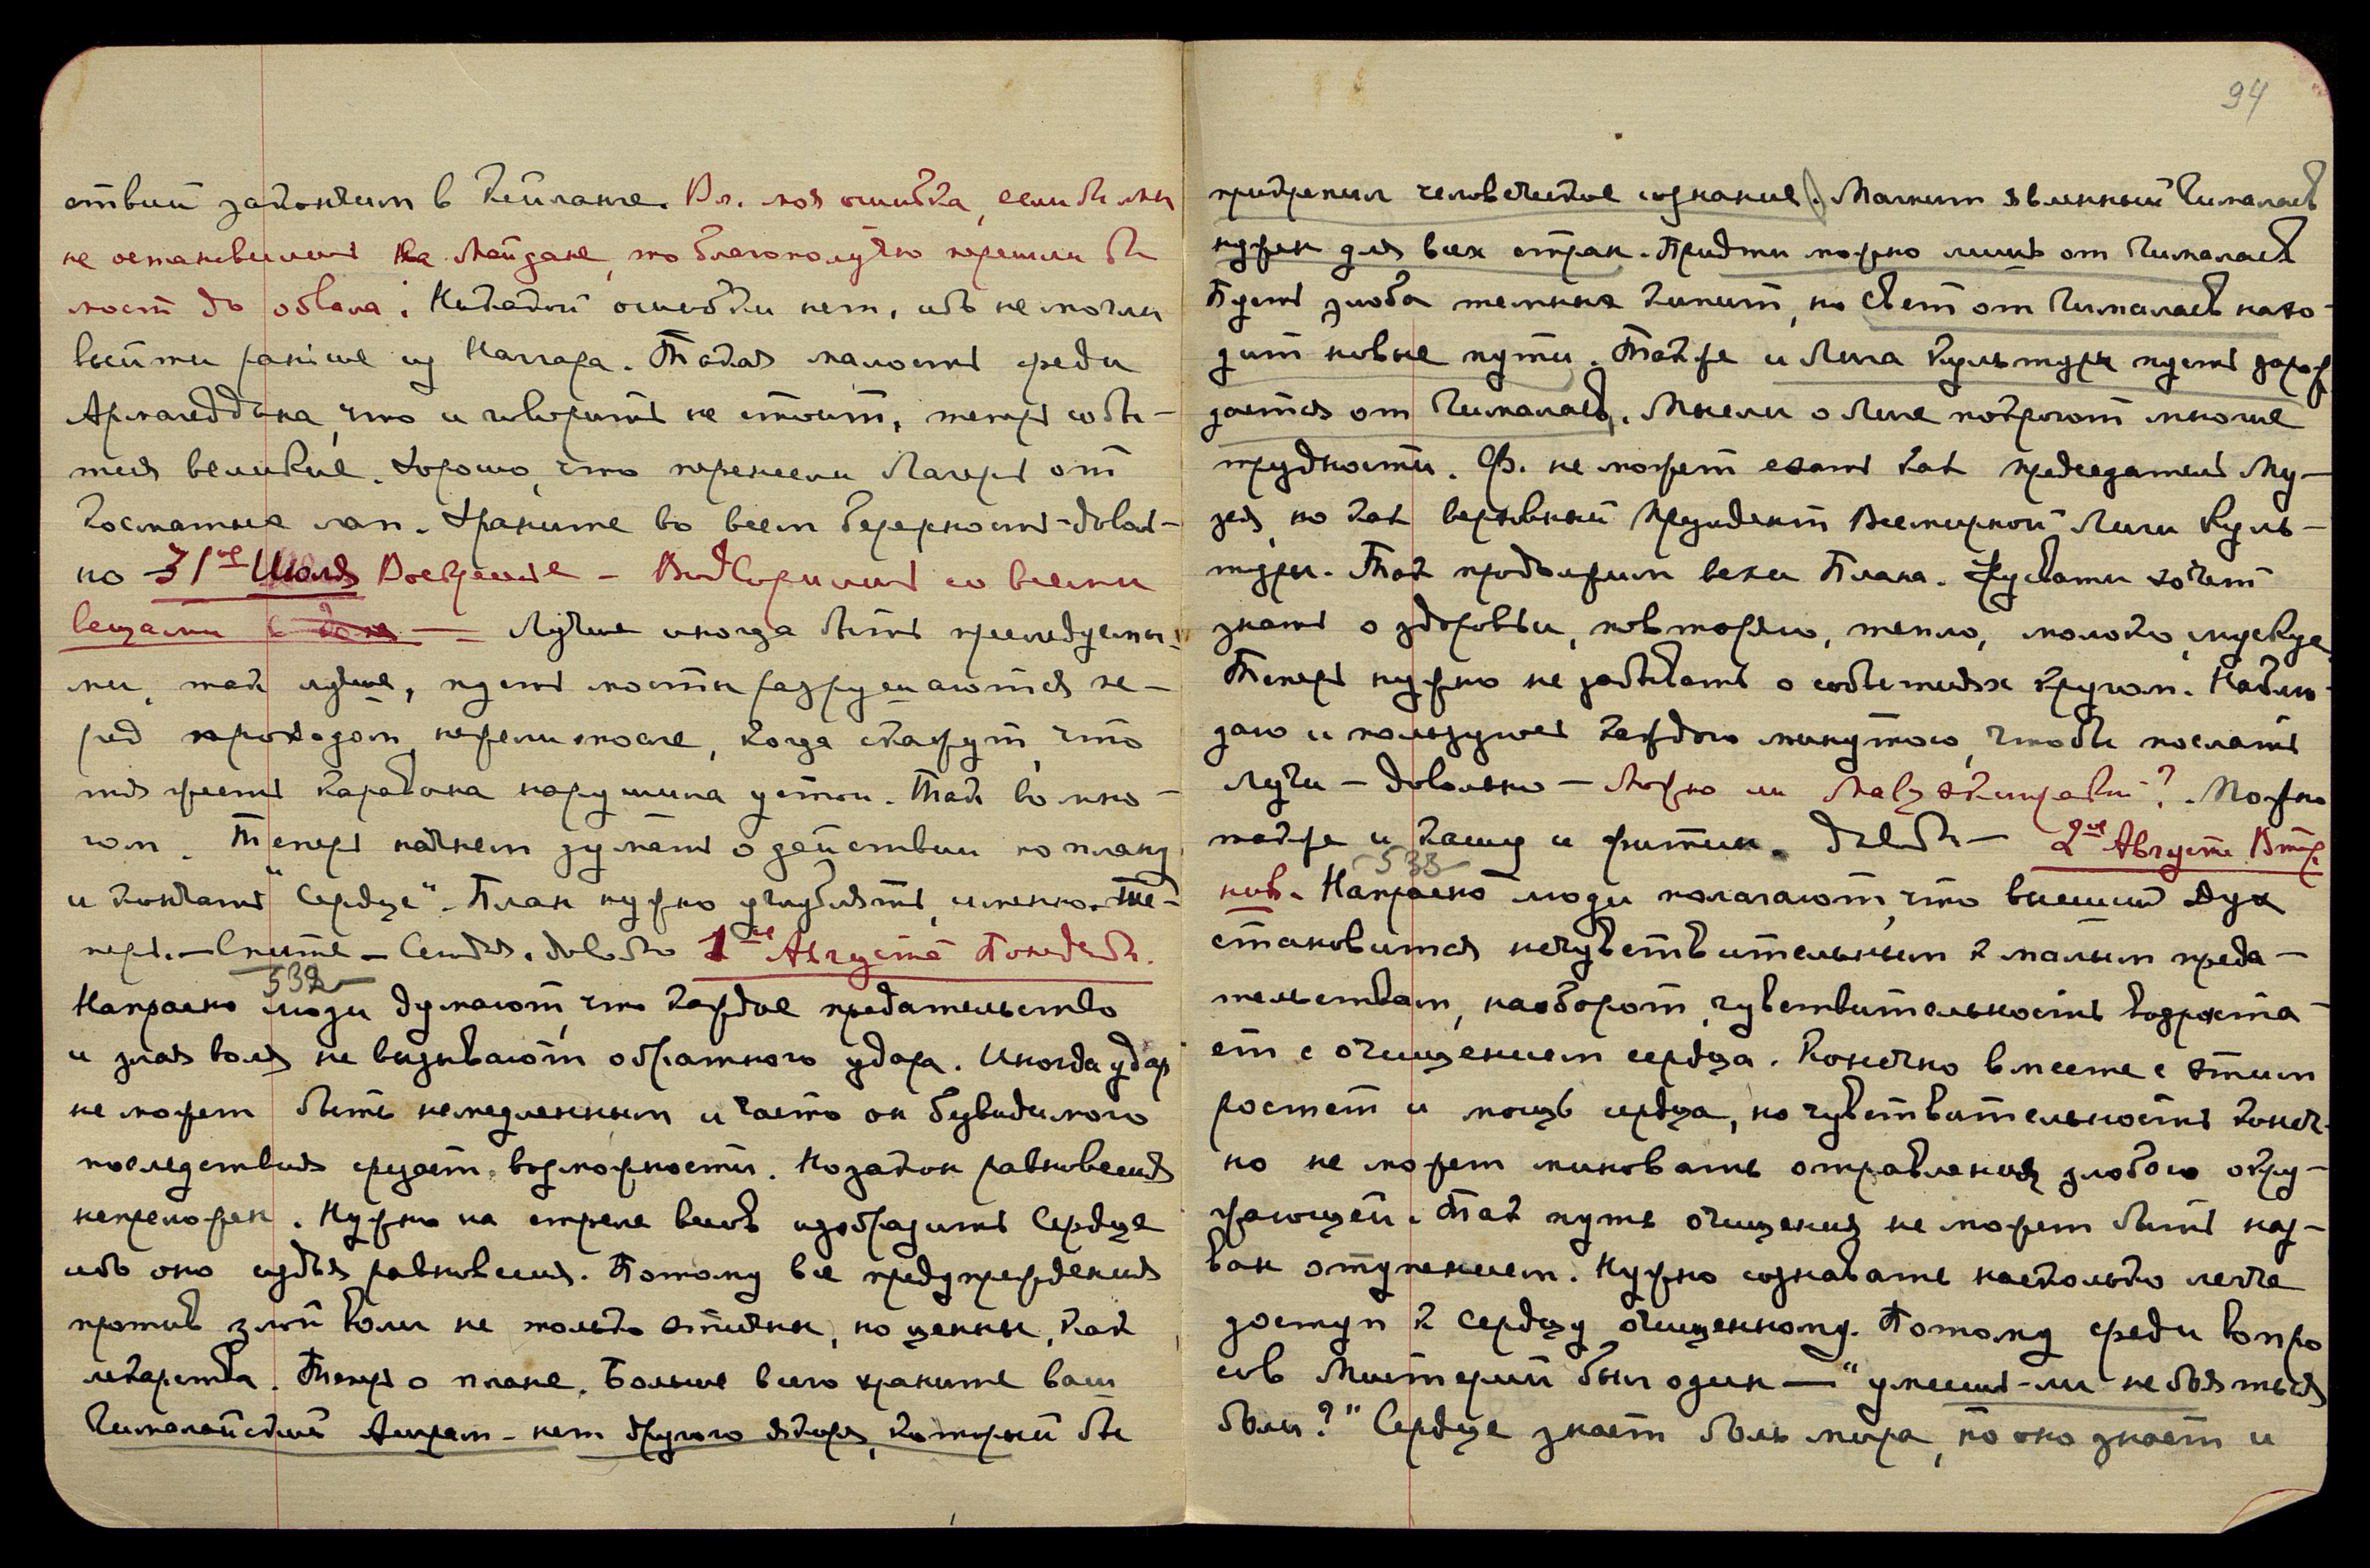 ствий закончим в Кейланге. Вл. моя ошибка, если бы мы
не остановились на Майдане, то благополучно перешли бы
мост до обвала. Никакой ошибки нет, ибо не могли
выйти раньше из Наггара. Такая малость среди
Армагеддона, что и говорить не стоит, теперь собы-
тия великие. Хорошо, что перенесли Лагерь от
косматых лап. Храните во всем бережность - доволь-
но 31ое Июля Воскресенье -
вещами Лучше иногда быть преследуемы-
ми, так лучше, пусть мосты разрушаются пе-
ред проходом, нежели после, когда скажут, что
тяжесть каравана нарушила устои. Так во мно-
гом. Теперь начнем думать о действии по плану
и кончать "Сердце". План нужно углублять, именно. Те-
перь. - Спите - довольно 1ое Августа Понедель.
532
Напрасно люди думают, что каждое предательство
и злая воля не вызывают обратного удара. Иногда удар
не может быть немедленным и часто он без видимого
последствия среди возможности. Но закон равновесия
непреложен. Нужно на стреле весов изобразить Сердце
ибо оно судья равновесия. Потому все предупреждения
против злой воли не только этичны, но ценны, как
лекарства. Теперь о плане. Больше всего храните ваш
Гималайский Ашрам - нет другого якоря, который бы
94
прикрепил человеческое сознание. Магнит явленный Гималаев
нужен для всех стран. Придти можно лишь от Гималаев
Пусть злоба темных кипит, но Свет от Гималаев нахо-
дит новые пути. Также и Лига Культуры пусть зарож
дается от Гималаев. Мысли о Лиге покроют многие
трудности. Ф. не может ехать как председатель Му-
зея, но как верховный Президент Всемирной Лиги Куль-
туры. Так продолжим вехи Плана. Яруя хочет
знать о здоровьи, повторяю, тепло, молоко, мускус
Теперь нужно не забывать о событиях кругом. Наблю-
даю и пользуюсь каждою минутою, чтобы послать
лучи - довольно - Можно ли ? Можно
также и кашу и фитин. Довольно - 2ое Августа Втор
ник. 533 Напрасно люди полагают, что высший Дух
становится нечувствительным к малым преда-
тельствам, наоборот, чувствительность возраста-
ет с очищением сердца. Конечно вместе с этим
ростет и мощь сердца, но чувствительность конеч-
но не может миновать отравления злобою окру-
жающей. Так путь очищения не может быть наз-
ван отупением. Нужно сознавать насколько легче
доступ к Сердцу очищенному. Потому среди вопро
сов Мистерий был один - "умеешь-ли не бояться
боли?" Сердце знает боль мира, но оно знает и